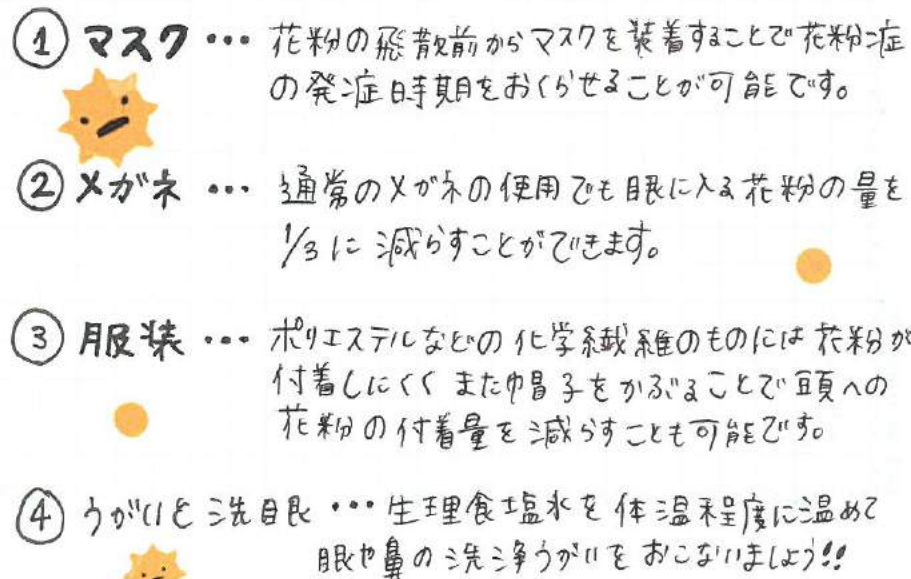 ① マスク ••• 花粉の飛散前からマスクを装着することで花粉症
の発症時期をおくらせることが可能です。
② メガネ ••• 通常のメガネの使用でも眼に入る花粉の量を
1/3に減らすことができます。
③ 服装 ••• ポリエステルなどの化学繊維のものには花粉が
付着しにくく また帽子をかぶることで頭への
花粉の付着量を減らすことも可能です。
④ うがいと洗眼 ••• 生理食塩水を体温程度に温めて
眼や鼻の洗浄うがいをおこないましょう!!